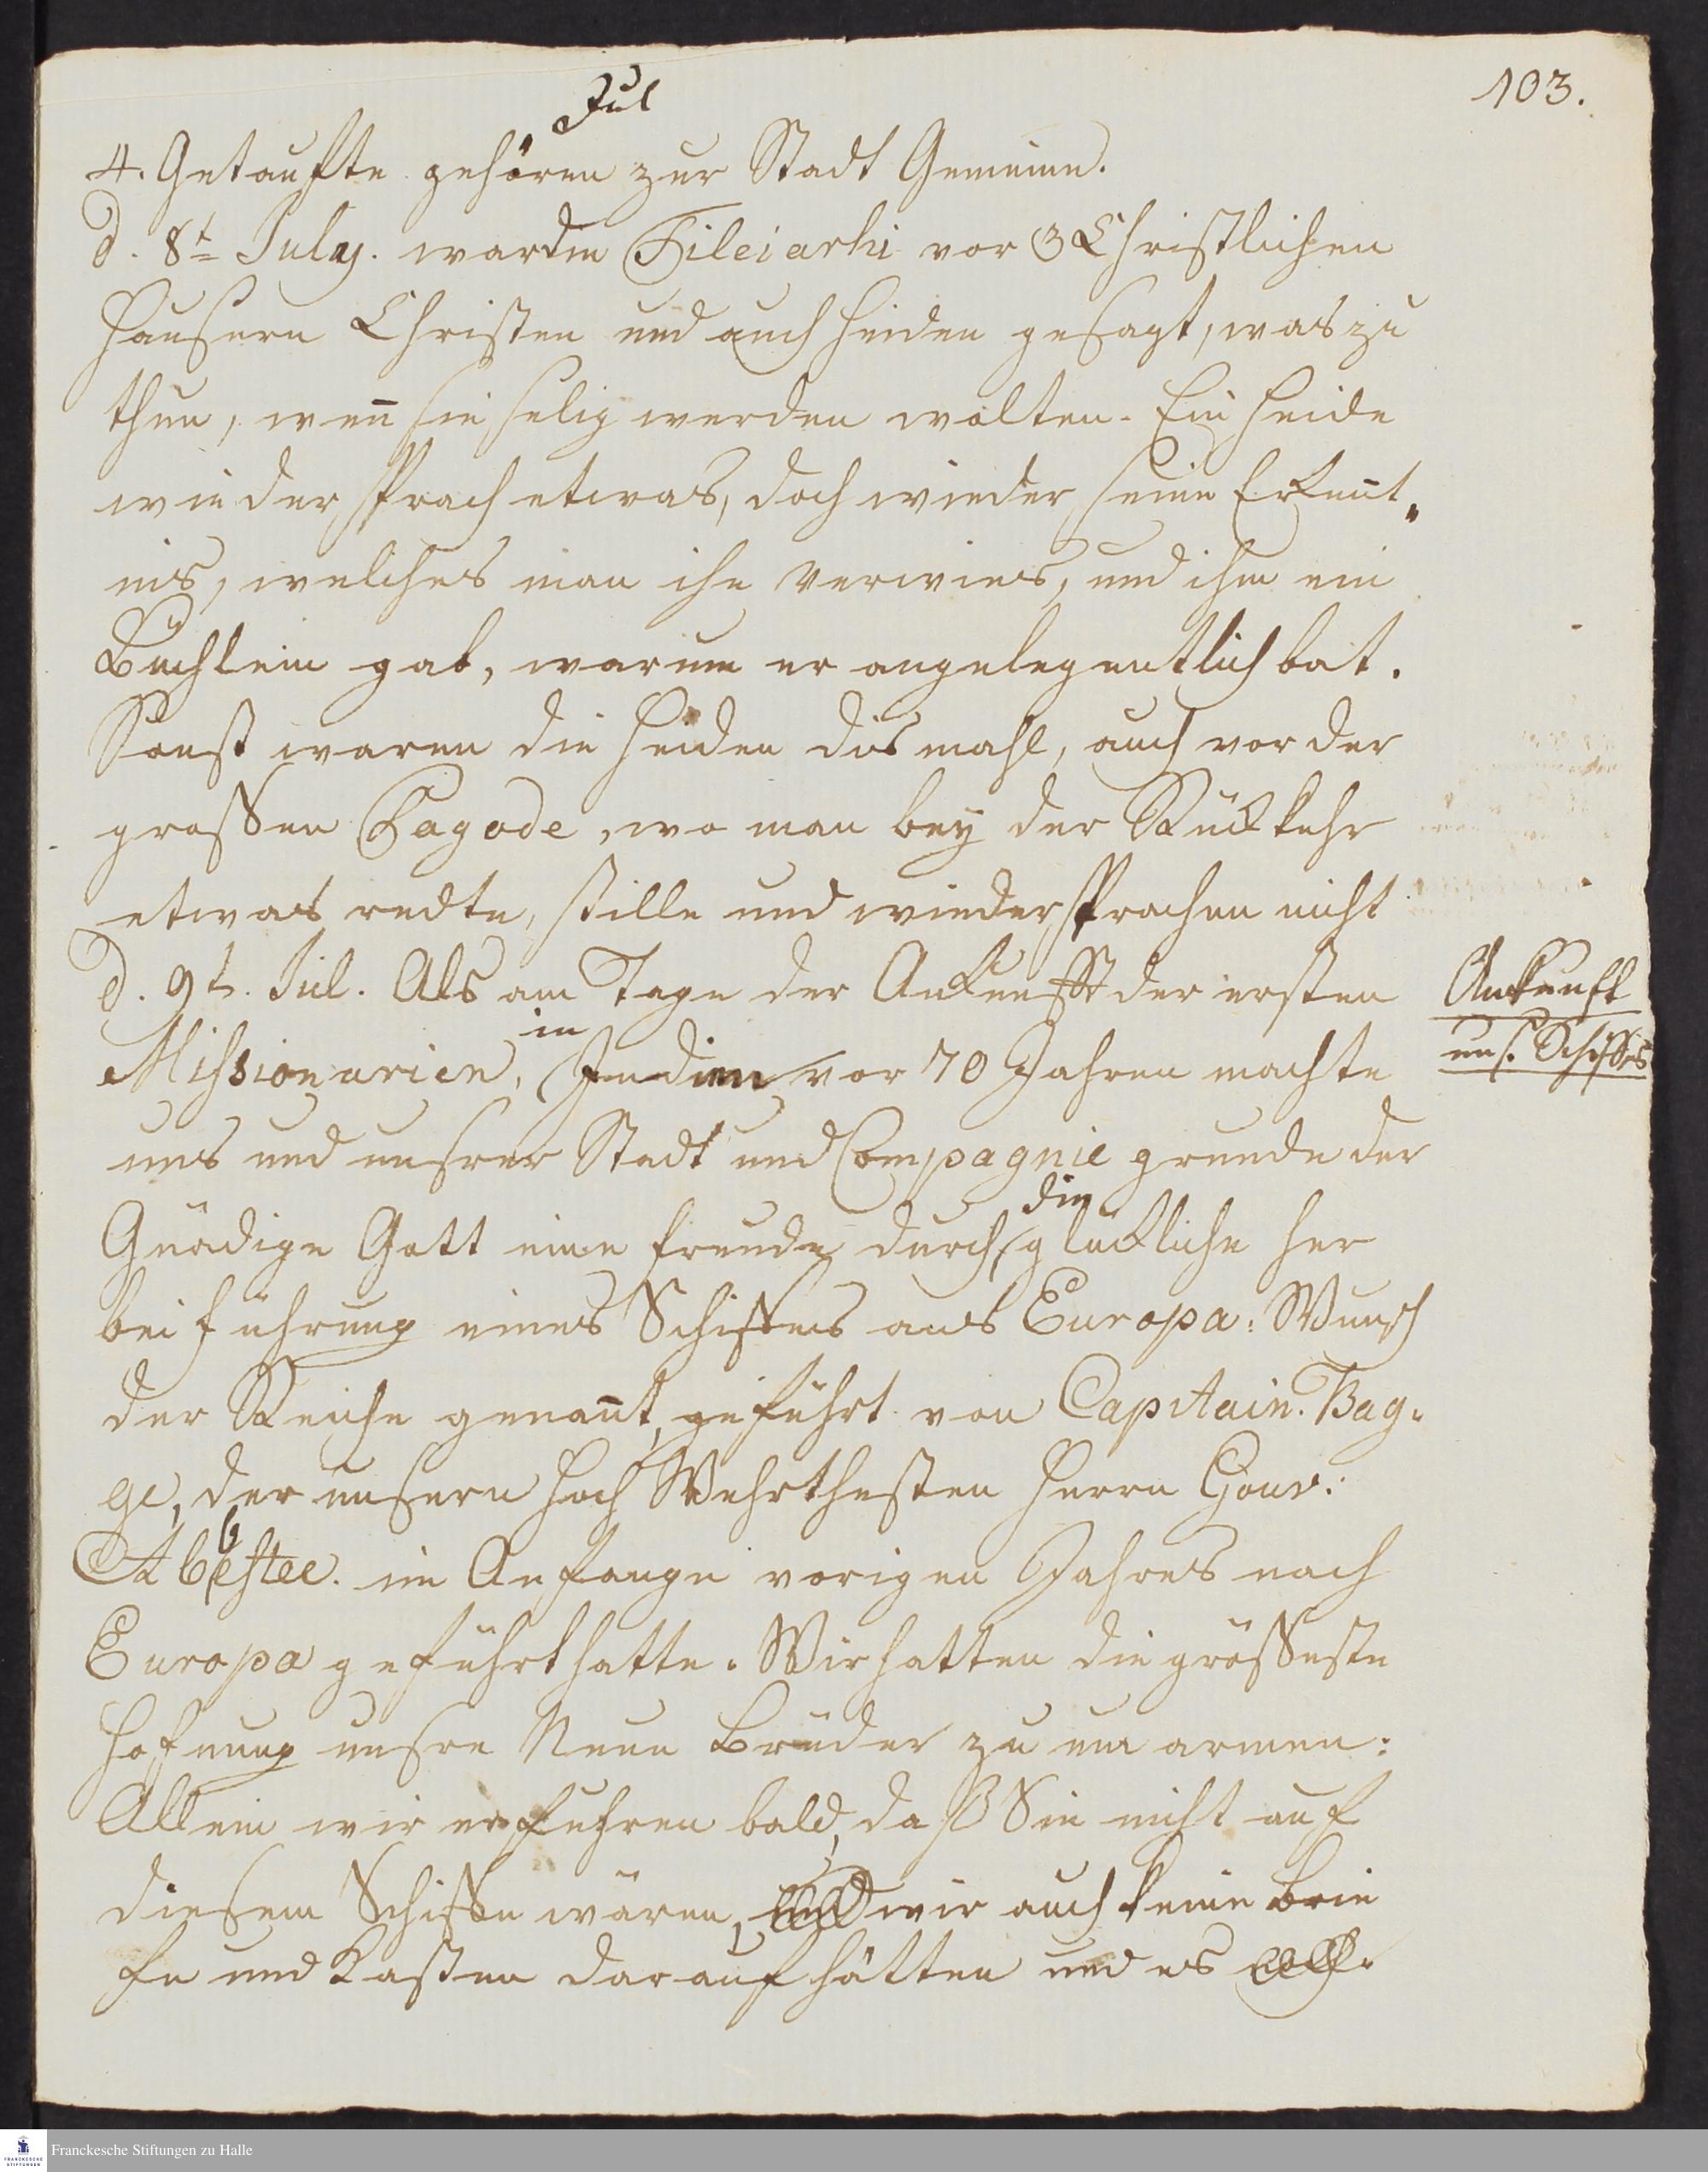 103.
Jul
4. Getaufte gehören zur Stadt Gemeine.
d. 8t July. warden Tileiarhi vor 3 Christlichen
Häusern Christen und auch Heiden gesagt, was zu
thun, wen̄ sie selig werden wolten. Ein Heide
wiedersprach etwas, doch wieder seine Erken̄t„
nis, welches man ihn verwies, und ihm ein
Büchlein gab, warum er angelegentlich bat.
Sonst waren die Heiden dismahl, auch vor der
grossen Pagode, wo man bey der Rückkehr
etwas redte, stille und wiedersprachen nicht
d. 9t. Jul. Als am Tage der Ankunfft der ersten
Missionarien, in Indien vor 70 Jahren machte
uns und unsrer Stadt und Compagnie grunde der
Gnädige Gott eine freude durch die glückliche her
beiführung eines Schiffes aus Europa: Wunsch
der Reiche genan̄t, geführt von Capitain. Bag„
ge, der unsern Hoch Wehrthesten Herrn Gouv:
Abbestee. im Anfange vorigen Jahres nach
Europa geführt hatte. Wir hatten die grösseste
Hofnung unsre Neue Brüder zu um armen:
Allein wir erfuhren bald, daß Sie nicht auf
diesem Schiffe wären, und wir auch keine Brie
fe und Kasten darauf hätten und es
Ankunft
uns. Schiffes
Franckesche Stiftungen zu Halle